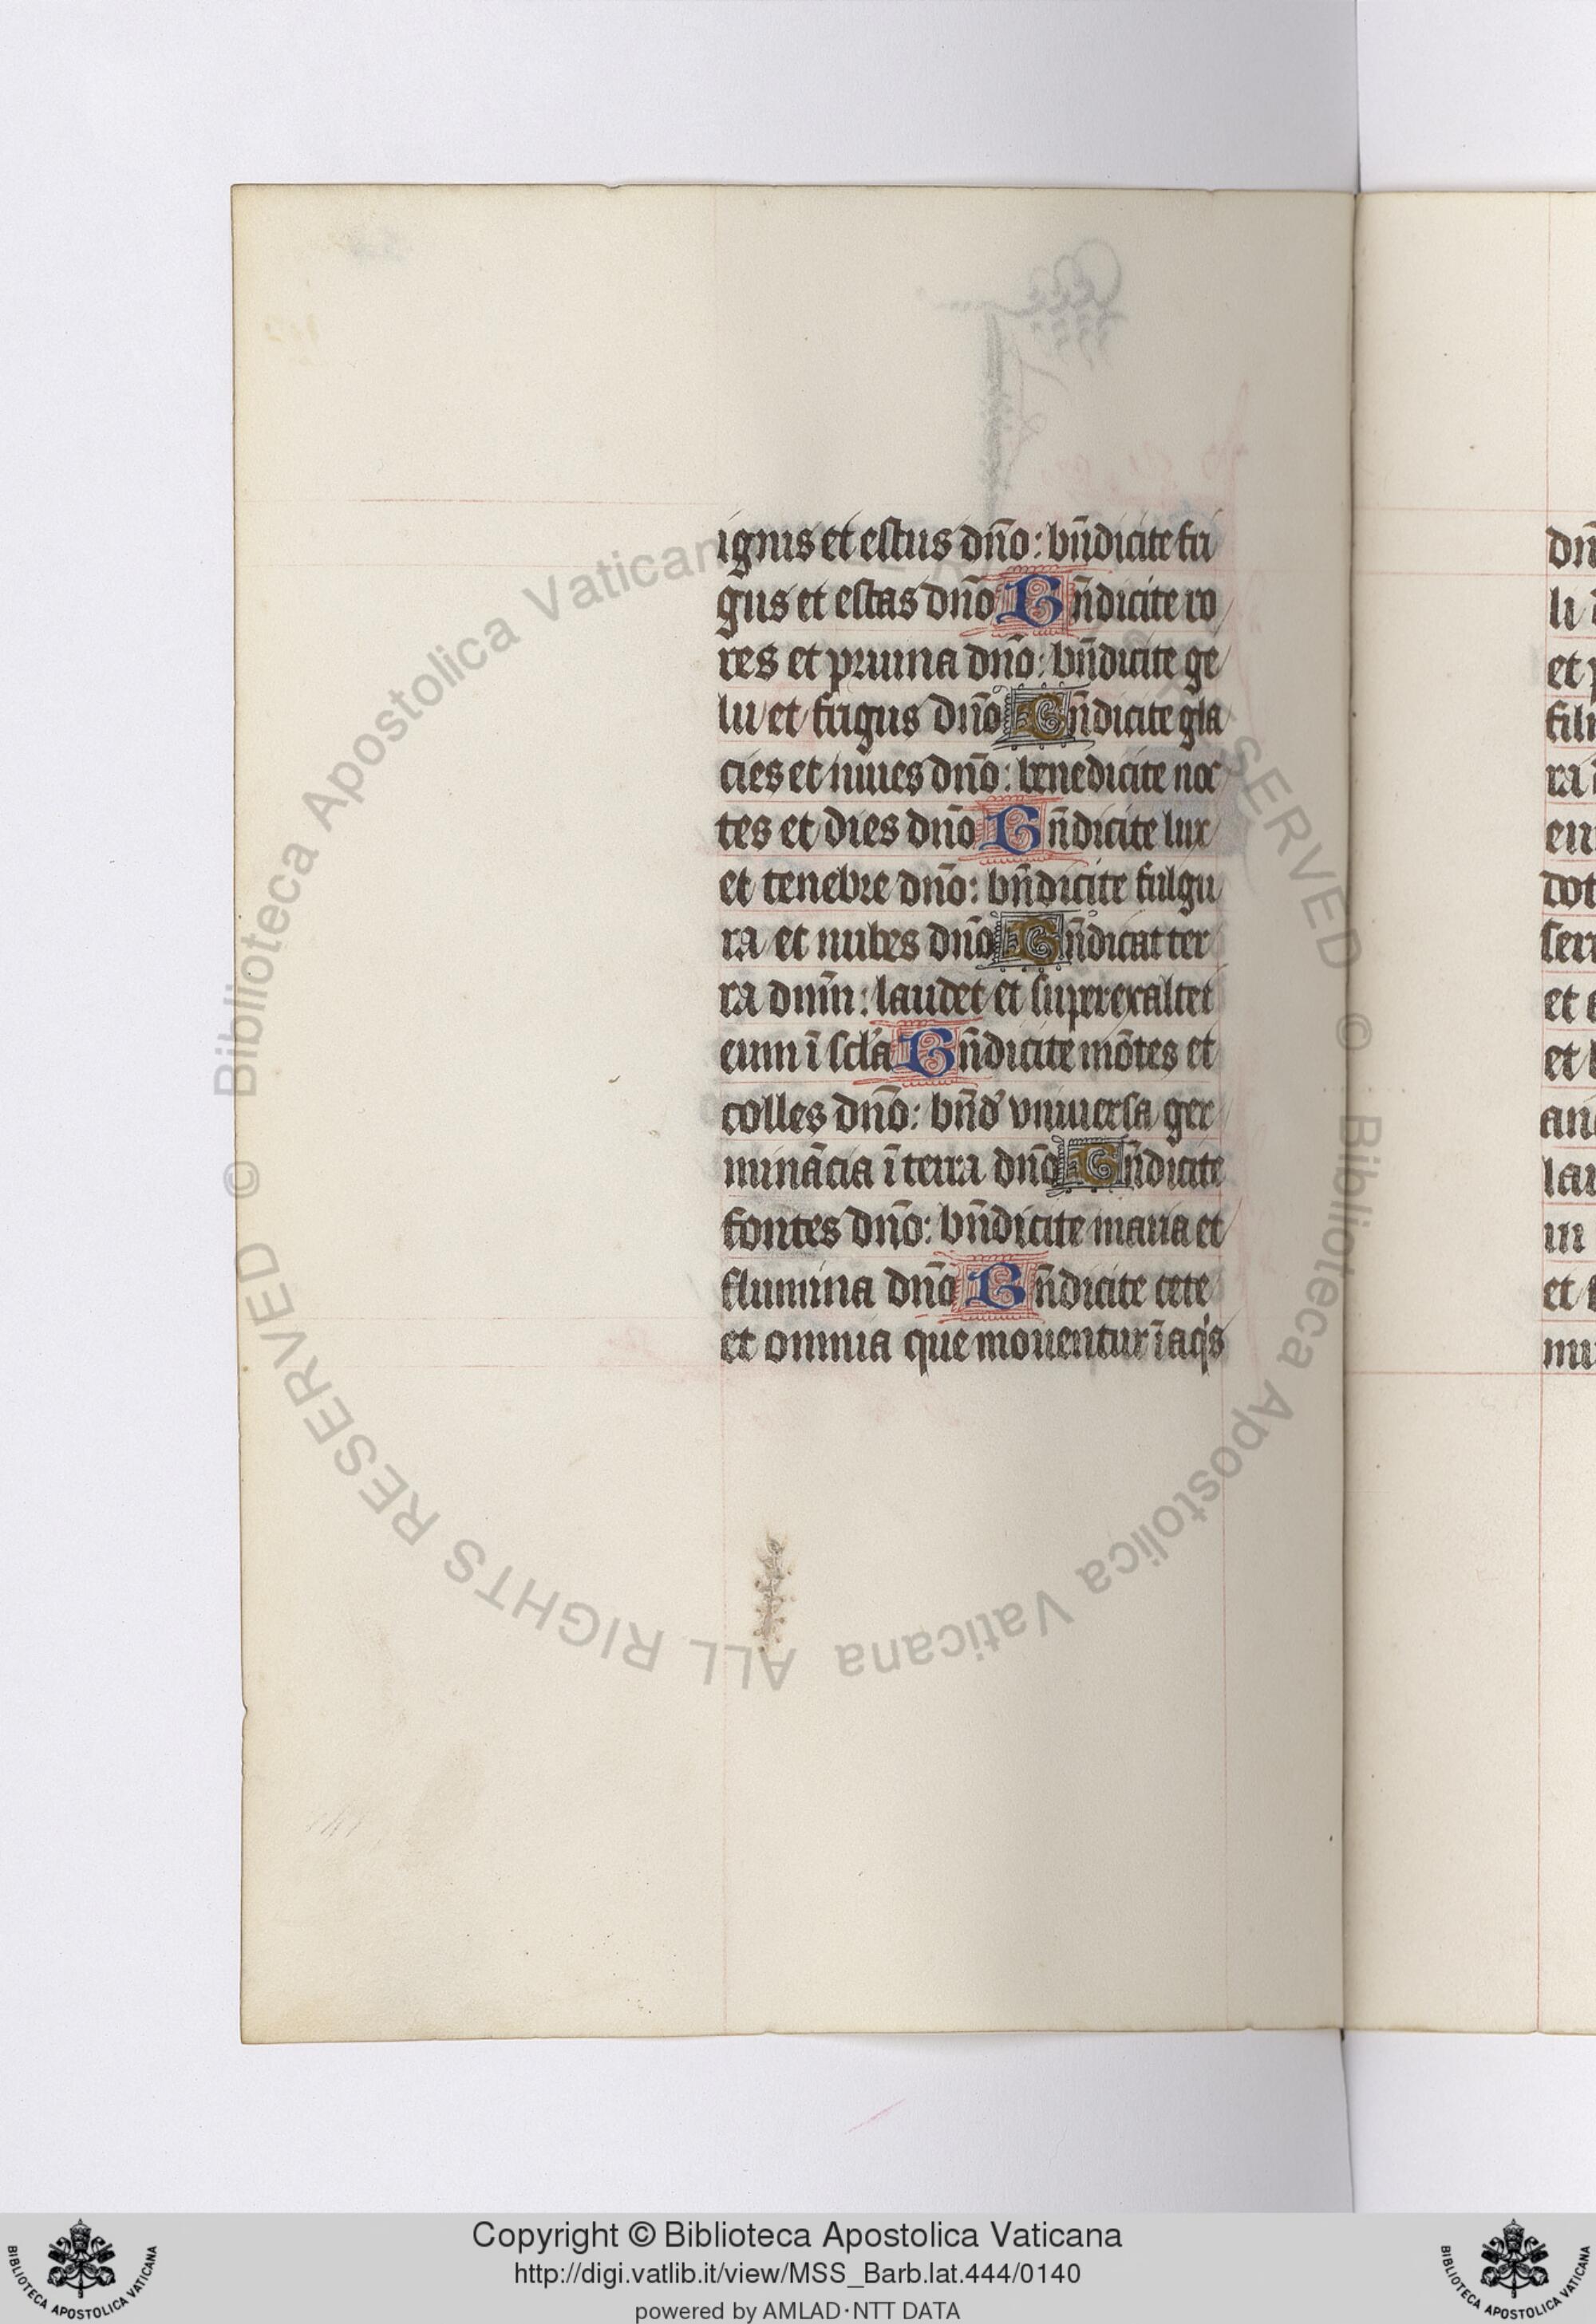 ignis et estus dño: bñdicite fri
gus et estas dño Bñdicite ro
res et pruina dño: bñdicite ge
lu et frigus dño Bñdicite gla
cies et niues dño: benedicite noc
tes et dies dño Bñdicite lux
et tenebre dño: bñdicite fulgu
ra et nubes dño Bñdicat ter
ra dnm̄: laudet et superexaltet
eum ī scl'a Bñdicite mōtes et
colles dño: bñd' vniuersa ger
minācia ī terra dño Bñdicite
fontes dño: bñdicite maria et
flumina dño Bñdicite cete
et omnia que mouentur ī aq's
dñ
li
et
fili
ra
en
dot
ser
et
et
an
lau
in
et
mi
© Biblioteca Apostolica Vaticana ALL RIGHTS RESERVED © Biblioteca Apostolica Vaticana ALL RIGHTS RESERVED
Copyright © Biblioteca Apostolica Vaticana
http://digi.vatlib.it/view/MSS_Barb.lat.444/0140
powered by AMLAD·NTT DATA
BIBLIOTECA APOSTOLICA VATICANA
BIBLIOTECA APOSTOLICA VATICANA